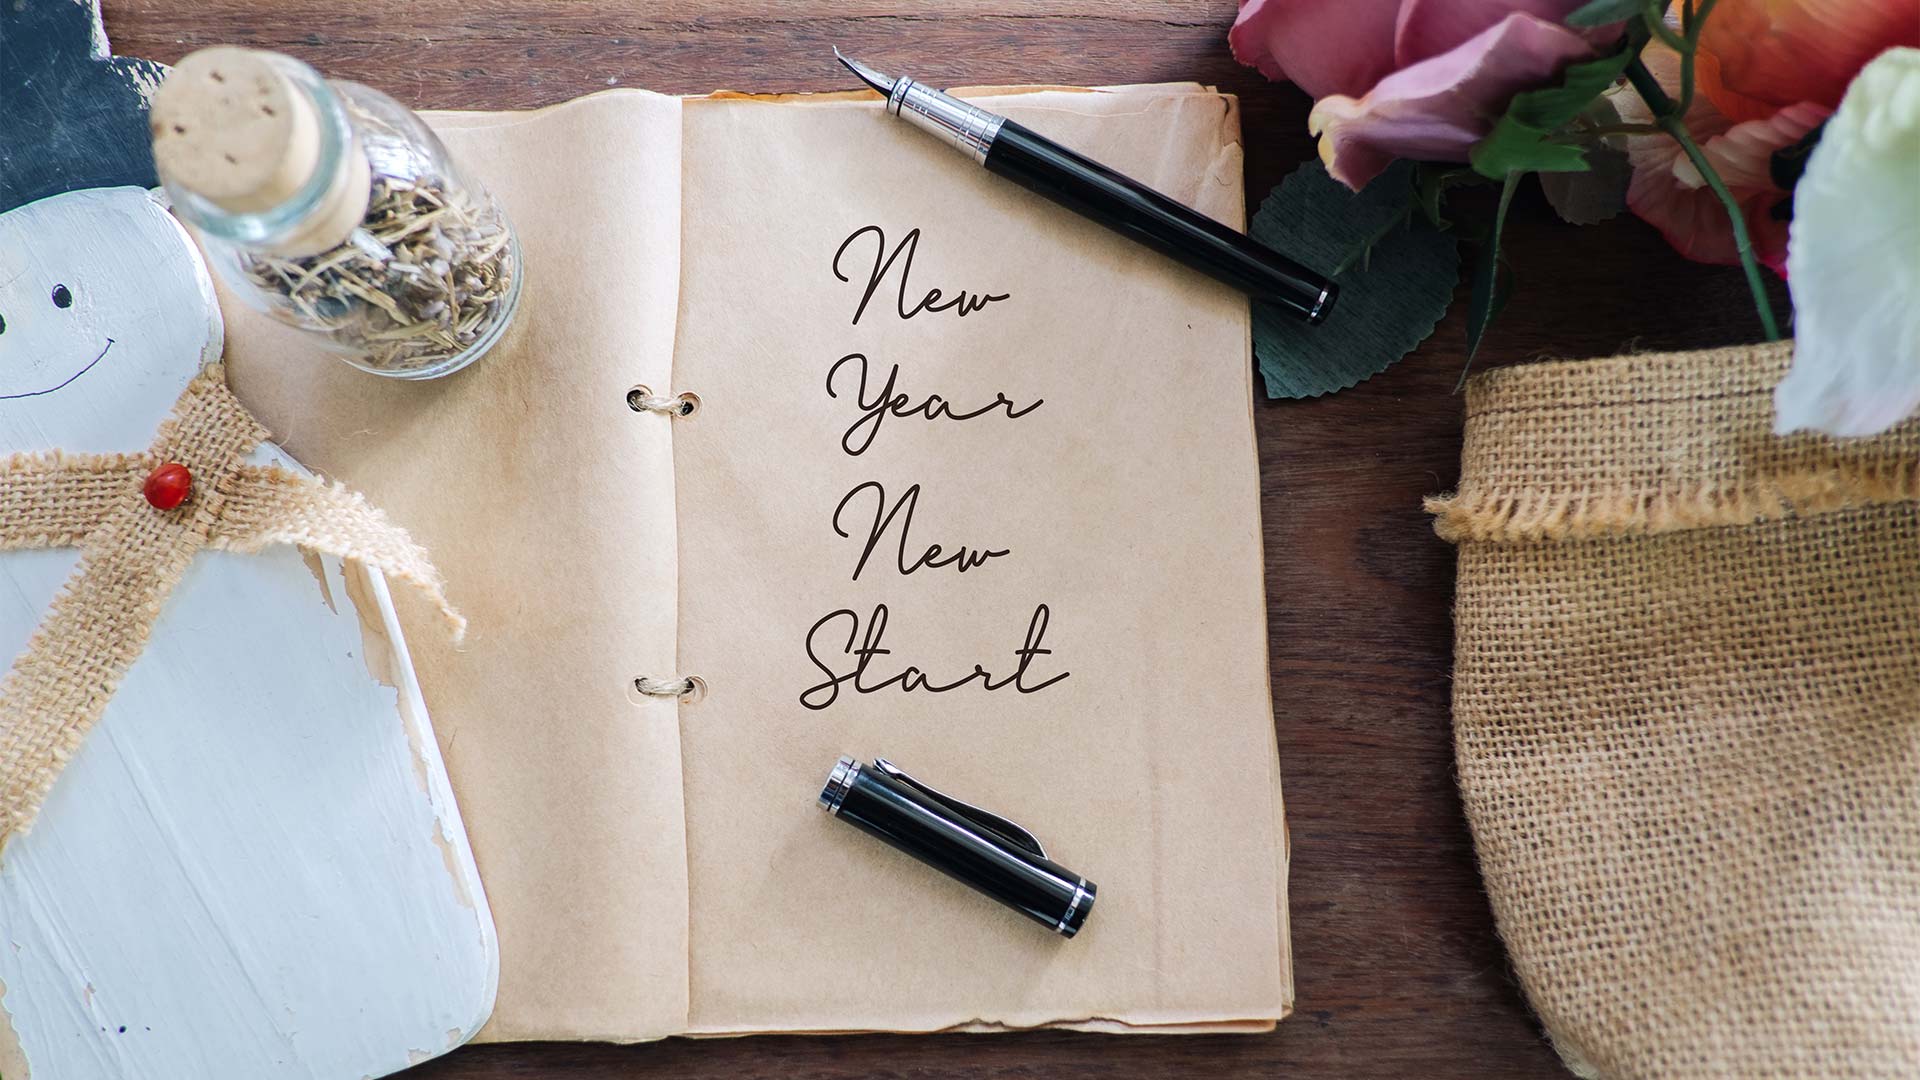 New
Year
New
Start